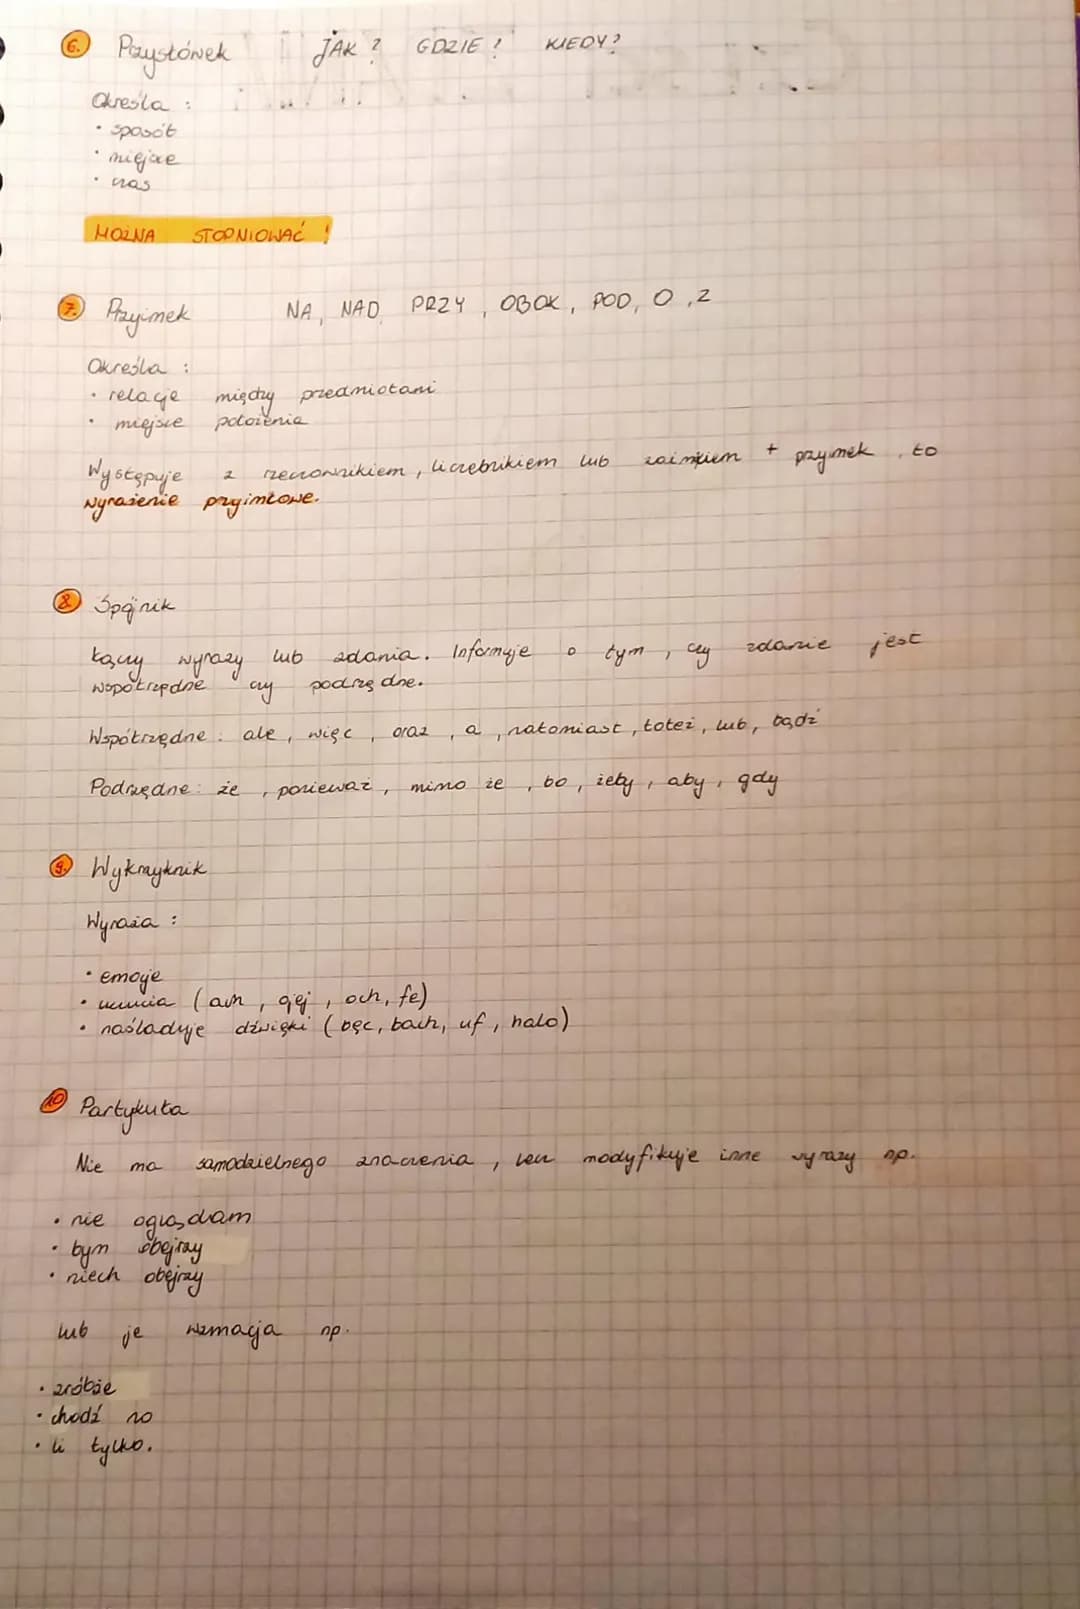 6. Przysłówek JAK? GDZIE? KIEDY?
Określa :
• sposób
• miejsce
• czas
MOŻNA STOPNIOWAĆ !
7. Przyimek NA, NAD, PRZY, OBOK, POD, O, Z
Określa :
• relacje między przedmiotami
• miejsce położenia
Występuje z rzeczownikiem, liczebnikiem lub zaimkiem + przyimek, to
wyrażenie przyimkowe.
8. Spójnik
Łączy wyrazy lub zdania. Informuje o tym, czy zdanie jest
współrzędne czy podrzędne.
Współrzędne: ale, więc, oraz, a, natomiast, toteż, lub, bądź
Podrzędne: że, ponieważ, mimo że, bo, żeby, aby, gdy
9. Wykrzyknik
Wyraża :
• emocje
• uczucia (ach, ojej, och, fe)
• naśladuje dźwięki (bęc, bach, uf, halo)
10 Partykuła
Nie ma samodzielnego znaczenia, lecz modyfikuje inne wyrazy np.
• nie oglądam
• bym obejrzy
• niech obejrzy
lub je wzmacja np.
• zróbże
• chodź no
• li tylko.